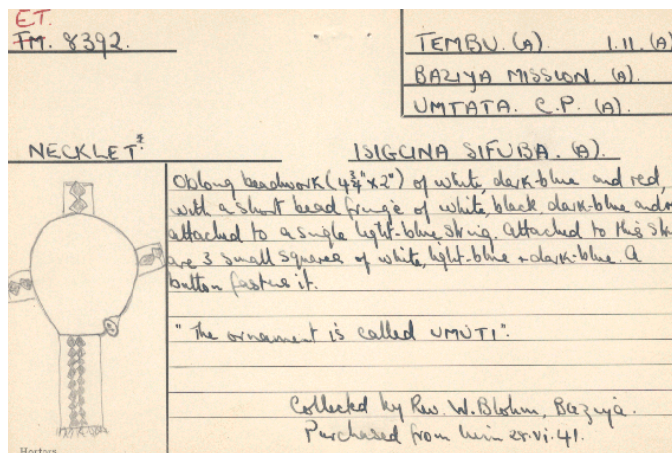 ET.
TM. 8392.
TEMBU. (A). 1.11. (A)
BAZIYA MISSION. (A).
UMTATA. C.P. (A).
NECKLET?
ISIGCINA SIFUBA. (A).
Oblong beadwork (4¾" x 2") of white, dark-blue and red,
with a short bead fringe of white, black, dark-blue and
attached to a single light-blue string. Attached to this
are 3 small squares of white, light-blue + dark-blue. A
button fastens it.
"The ornament is called UMUTI".
Collected by Rev. W. Blohm, Baziya.
Purchased from him 28.vi.41.
Hortors